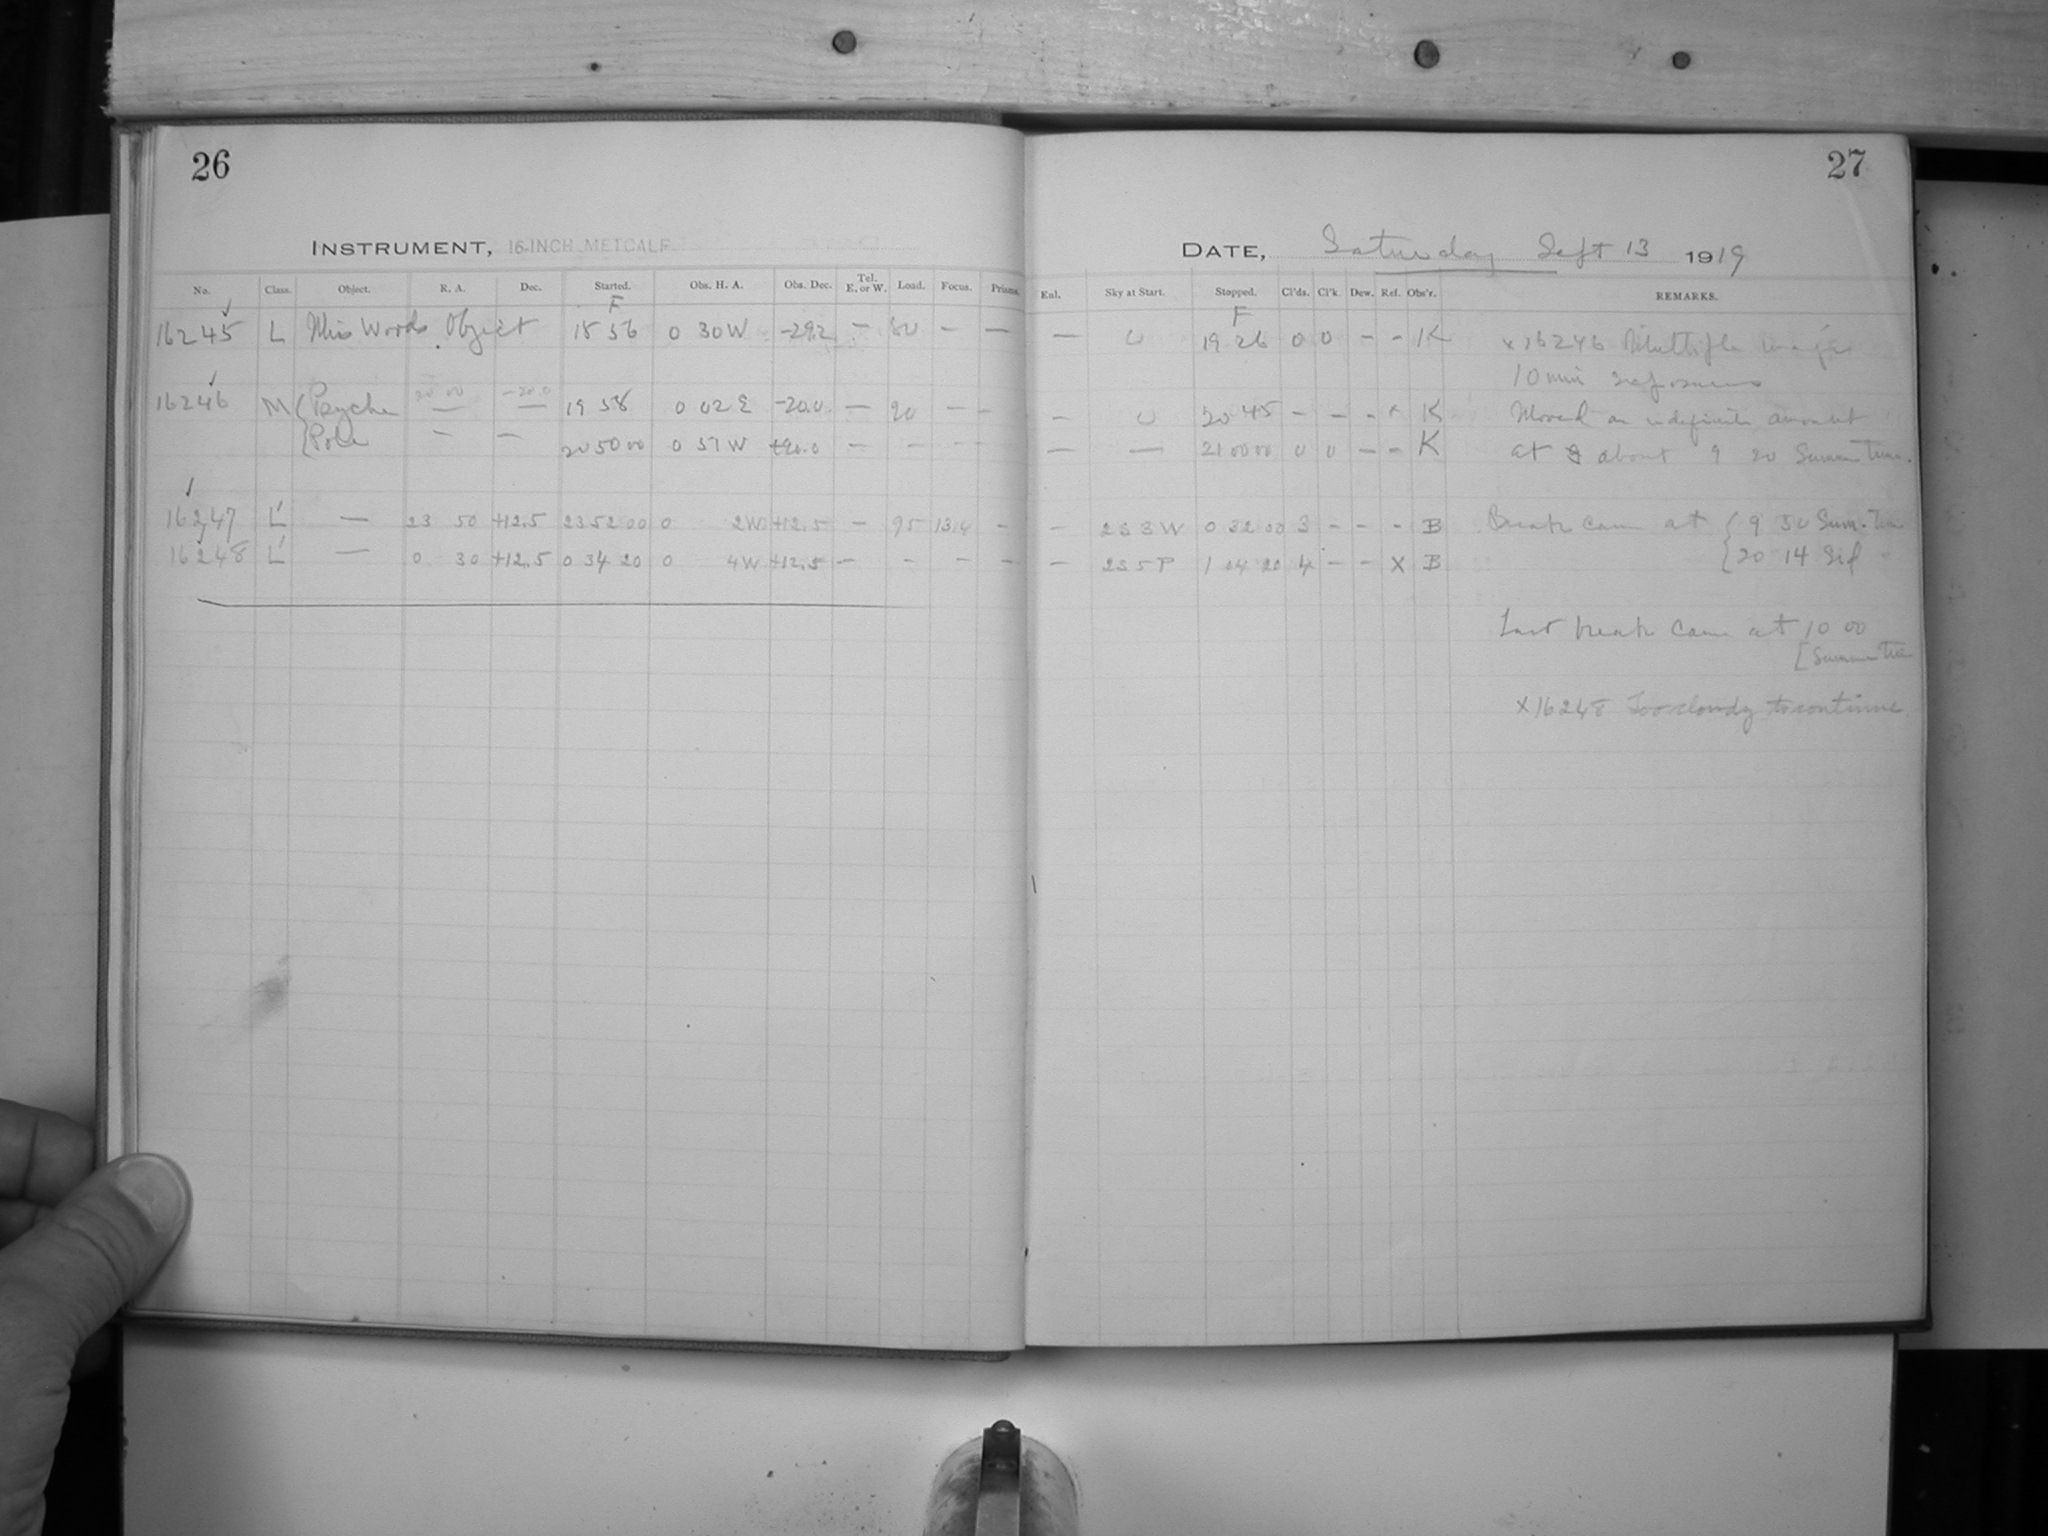 26
INSTRUMENT, 16-INCH METCALF
No. Class. Object. R. A. Dec. Started. Obs. H. A. Obs. Dec. Tel. E. or W. Load. Focus. Prisms.
F
16245 L Miss Woods Object 18 56 0 30 W -29.2 — 80 — —
16246 M { Psyche 20 00 -20.0 — — 19 58 0 02 E -20.0 — 90 — —
{ Pole — — 20 50 00 0 57 W +90.0 — — — —
16247 L' — 23 50 +12.5 23 52 00 0 2W +12.5 — 95 13.4 -
16248 L' — 0 30 +12.5 0 34 20 0 4W +12.5 — - - -
27
DATE, Saturday Sept 13 1919
Enl. Sky at Start. Stopped. Cl'ds. Cl'k. Dew. Ref. Obs'r. REMARKS.
F
— 19 26 0 0 - - K x 16246 Multiple
10 min
- 20 45 - - - x K Moved an indefinite amount
— — 21 00 00 0 0 - - K at about 9 20 Summer Time.
- 23 3 W 0 32 00 3 - - - B Break came at { 9 30 Sum. Time
— 23 5 P 1 04 20 4 - - X B { 20 14 Sid
Last break came at 10 00
[Summer Time
X 16248 Too cloudy to continue